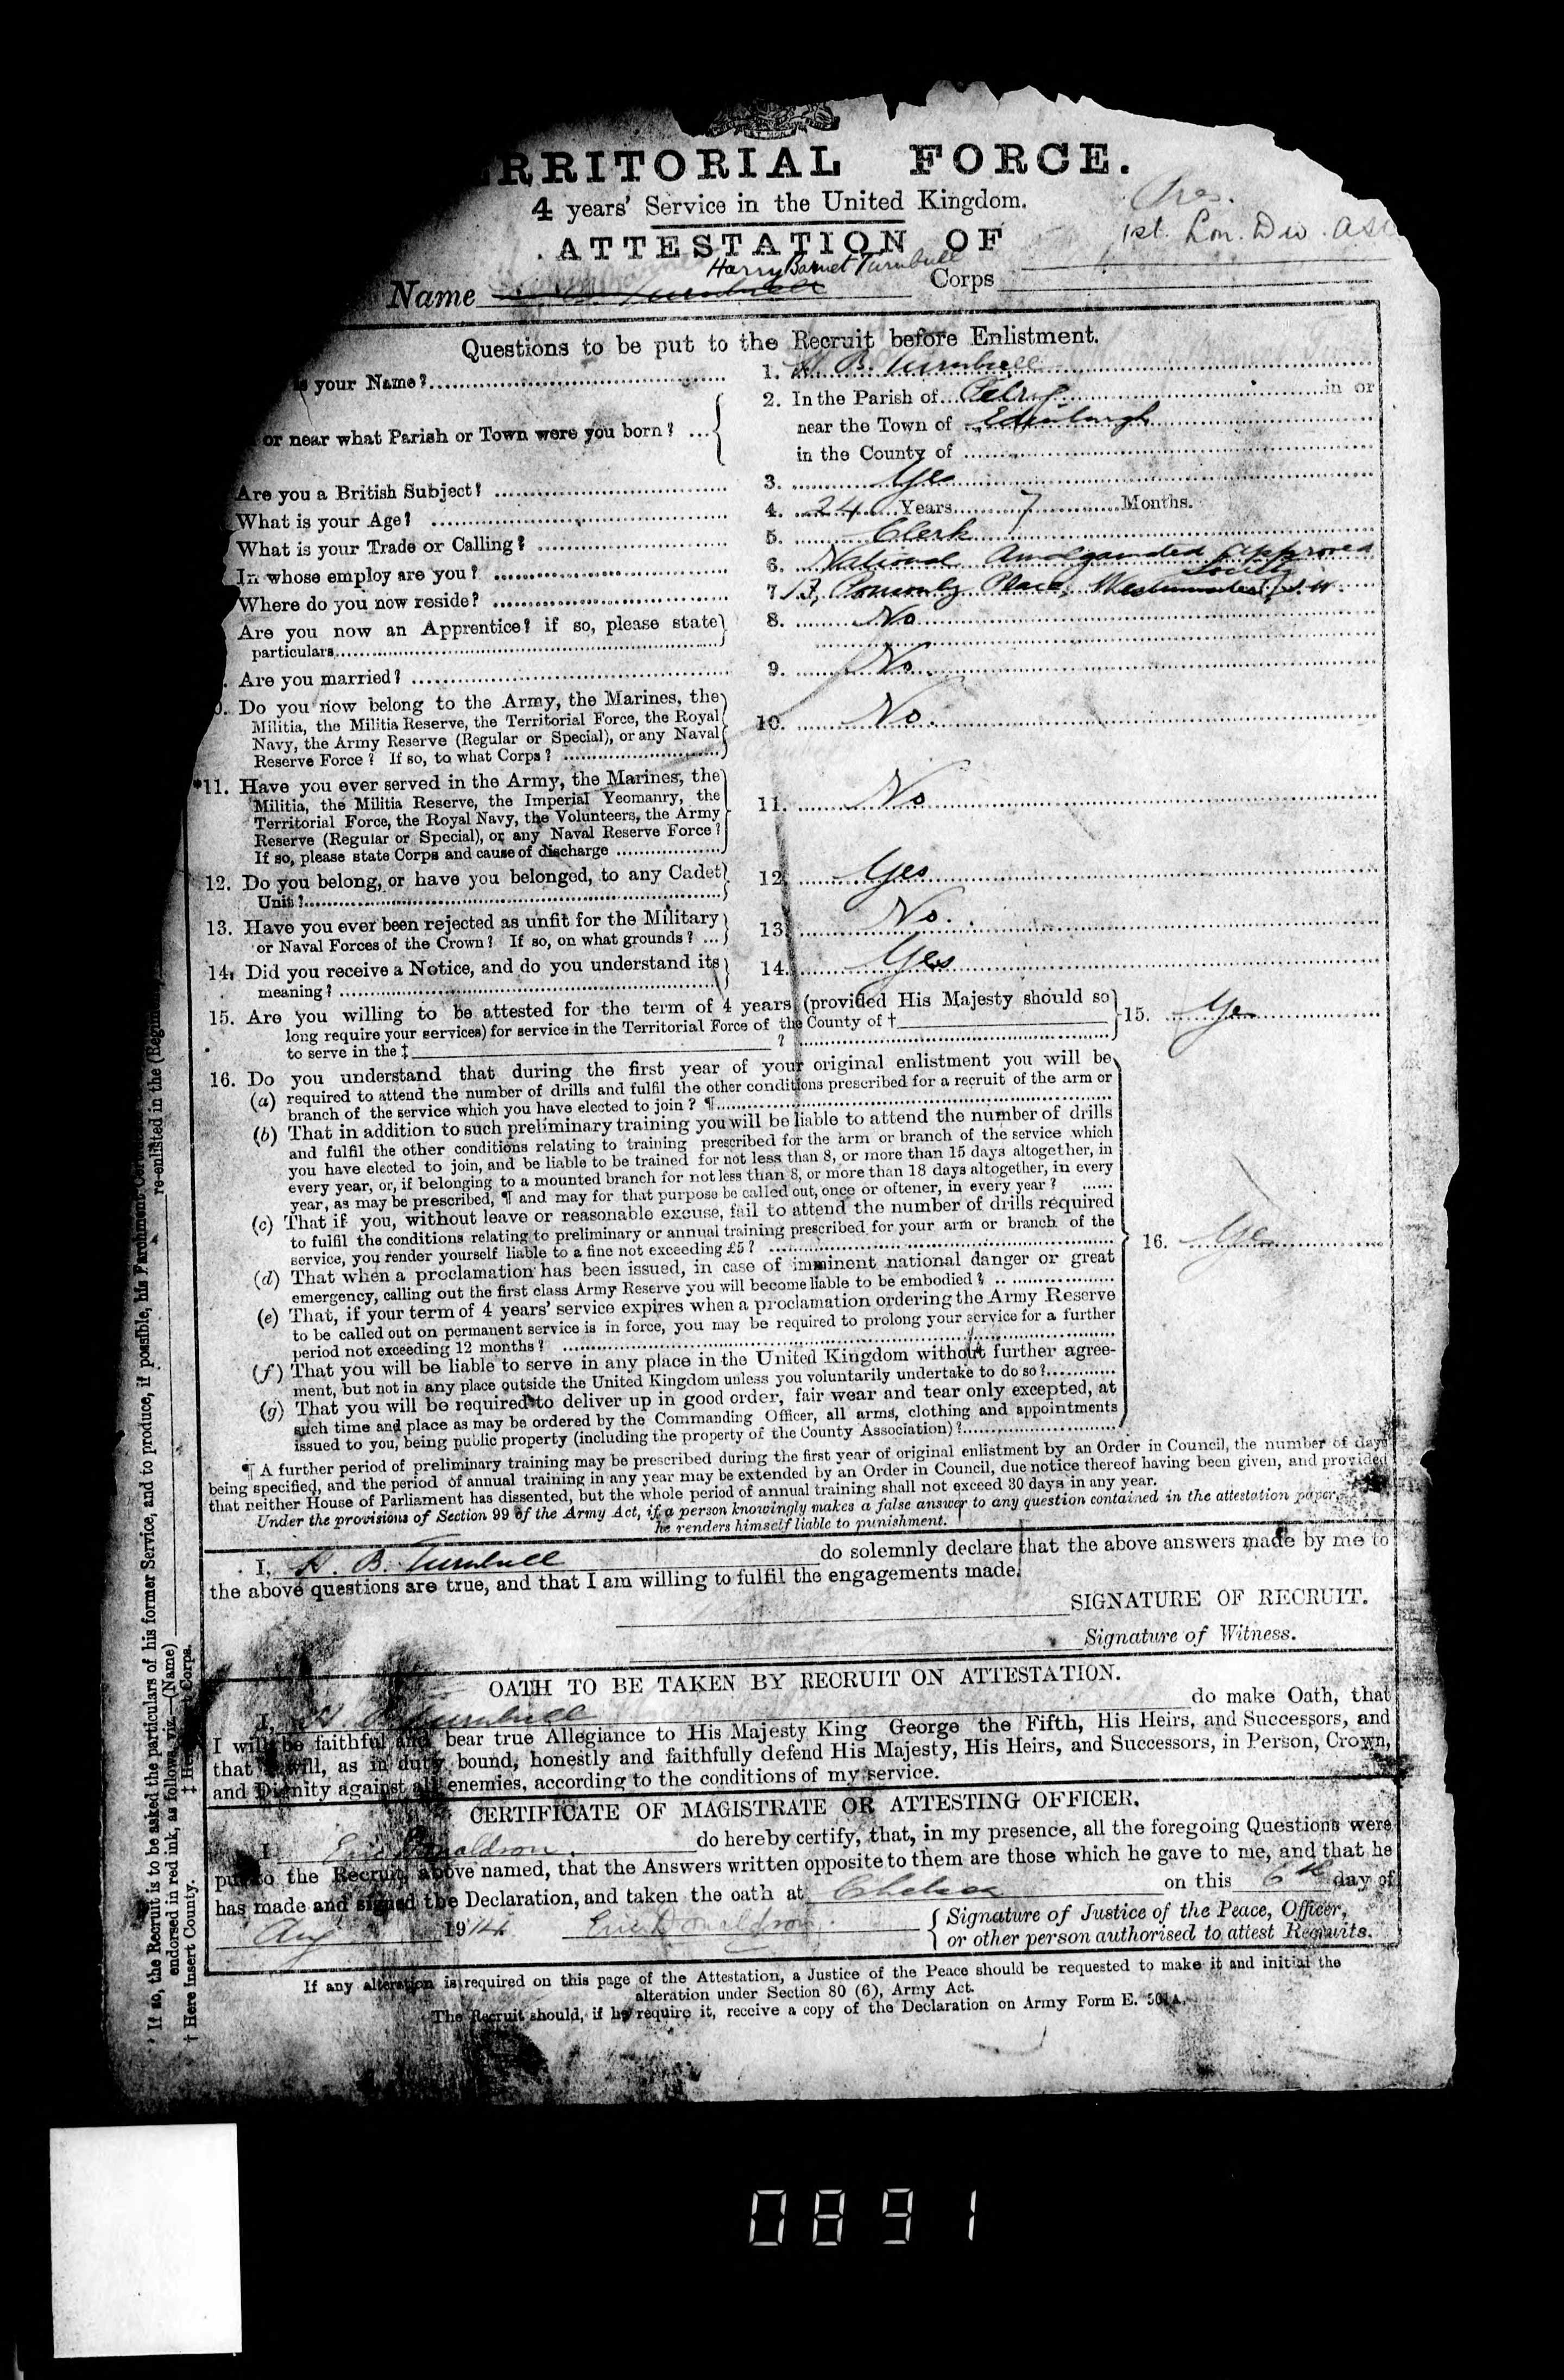 RRITORIAL FORCE.
4 years' Service in the United Kingdom.
1st. Lon. Div. ASC
ATTESTATION OF
Harry Barnet Turnbull
Name Turnbull Corps
Questions to be put to the Recruit before Enlistment.
is your Name? 1. H. B. Turnbull
or near what Parish or Town were you born? 2. In the Parish of in or
near the Town of Edinburgh
in the County of
Are you a British Subject? 3. Yes
What is your Age? 4. 24 Years 7 Months.
What is your Trade or Calling? 5. Clerk
In whose employ are you? 6. National Amalgamated Approved Society
Where do you now reside? 7. 17, Ponsonby Place, Westminster, S.W.
Are you now an Apprentice? if so, please state 8. No
particulars
Are you married? 9. No
0. Do you now belong to the Army, the Marines, the
Militia, the Militia Reserve, the Territorial Force, the Royal 10. No.
Navy, the Army Reserve (Regular or Special), or any Naval
Reserve Force? If so, to what Corps?
*11. Have you ever served in the Army, the Marines, the
Militia, the Militia Reserve, the Imperial Yeomanry, the 11. No
Territorial Force, the Royal Navy, the Volunteers, the Army
Reserve (Regular or Special), or any Naval Reserve Force?
If so, please state Corps and cause of discharge
12. Do you belong, or have you belonged, to any Cadet 12. Yes
Unit?
13. Have you ever been rejected as unfit for the Military 13. No.
or Naval Forces of the Crown? If so, on what grounds? ...
14. Did you receive a Notice, and do you understand its 14. Yes
meaning?
15. Are you willing to be attested for the term of 4 years (provided His Majesty should so 15. Yes
long require your services) for service in the Territorial Force of the County of †
to serve in the ‡ ?
16. Do you understand that during the first year of your original enlistment you will be
(a) required to attend the number of drills and fulfil the other conditions prescribed for a recruit of the arm or
branch of the service which you have elected to join? ¶
(b) That in addition to such preliminary training you will be liable to attend the number of drills
and fulfil the other conditions relating to training prescribed for the arm or branch of the service which
you have elected to join, and be liable to be trained for not less than 8, or more than 15 days altogether, in
every year, or, if belonging to a mounted branch for not less than 8, or more than 18 days altogether, in every
year, as may be prescribed, ¶ and may for that purpose be called out, once or oftener, in every year?
(c) That if you, without leave or reasonable excuse, fail to attend the number of drills required
to fulfil the conditions relating to preliminary or annual training prescribed for your arm or branch of the 16. Yes
service, you render yourself liable to a fine not exceeding £5?
(d) That when a proclamation has been issued, in case of imminent national danger or great
emergency, calling out the first class Army Reserve you will become liable to be embodied?
(e) That, if your term of 4 years' service expires when a proclamation ordering the Army Reserve
to be called out on permanent service is in force, you may be required to prolong your service for a further
period not exceeding 12 months?
(f) That you will be liable to serve in any place in the United Kingdom without further agree-
ment, but not in any place outside the United Kingdom unless you voluntarily undertake to do so?
(g) That you will be required to deliver up in good order, fair wear and tear only excepted, at
such time and place as may be ordered by the Commanding Officer, all arms, clothing and appointments
issued to you, being public property (including the property of the County Association)?
¶ A further period of preliminary training may be prescribed during the first year of original enlistment by an Order in Council, the number of days
being specified, and the period of annual training in any year may be extended by an Order in Council, due notice thereof having been given, and provided
that neither House of Parliament has dissented, but the whole period of annual training shall not exceed 30 days in any year.
Under the provisions of Section 99 of the Army Act, if a person knowingly makes a false answer to any question contained in the attestation paper,
he renders himself liable to punishment.
I, H. B. Turnbull do solemnly declare that the above answers made by me to
the above questions are true, and that I am willing to fulfil the engagements made.
SIGNATURE OF RECRUIT.
Signature of Witness.
OATH TO BE TAKEN BY RECRUIT ON ATTESTATION.
I, H B Turnbull do make Oath, that
I will be faithful and bear true Allegiance to His Majesty King George the Fifth, His Heirs, and Successors, and
that I will, as in duty bound, honestly and faithfully defend His Majesty, His Heirs, and Successors, in Person, Crown,
and Dignity against all enemies, according to the conditions of my service.
CERTIFICATE OF MAGISTRATE OR ATTESTING OFFICER.
I Eric Donaldson. do hereby certify, that, in my presence, all the foregoing Questions were
put to the Recruit above named, that the Answers written opposite to them are those which he gave to me, and that he
has made and signed the Declaration, and taken the oath at Chelsea on this 6th day of
Aug 1914 Eric Donaldson. Signature of Justice of the Peace, Officer,
or other person authorised to attest Recruits.
If any alteration is required on this page of the Attestation, a Justice of the Peace should be requested to make it and initial the
alteration under Section 80 (6), Army Act.
The Recruit should, if he require it, receive a copy of the Declaration on Army Form E. 501A.
* If so, the Recruit is to be asked the particulars of his former Service, and to produce, if possible, his Parchment
endorsed in red ink, as follows, viz.—(Name) re-enlisted in the
† Here insert County. ‡ Corps.
0891